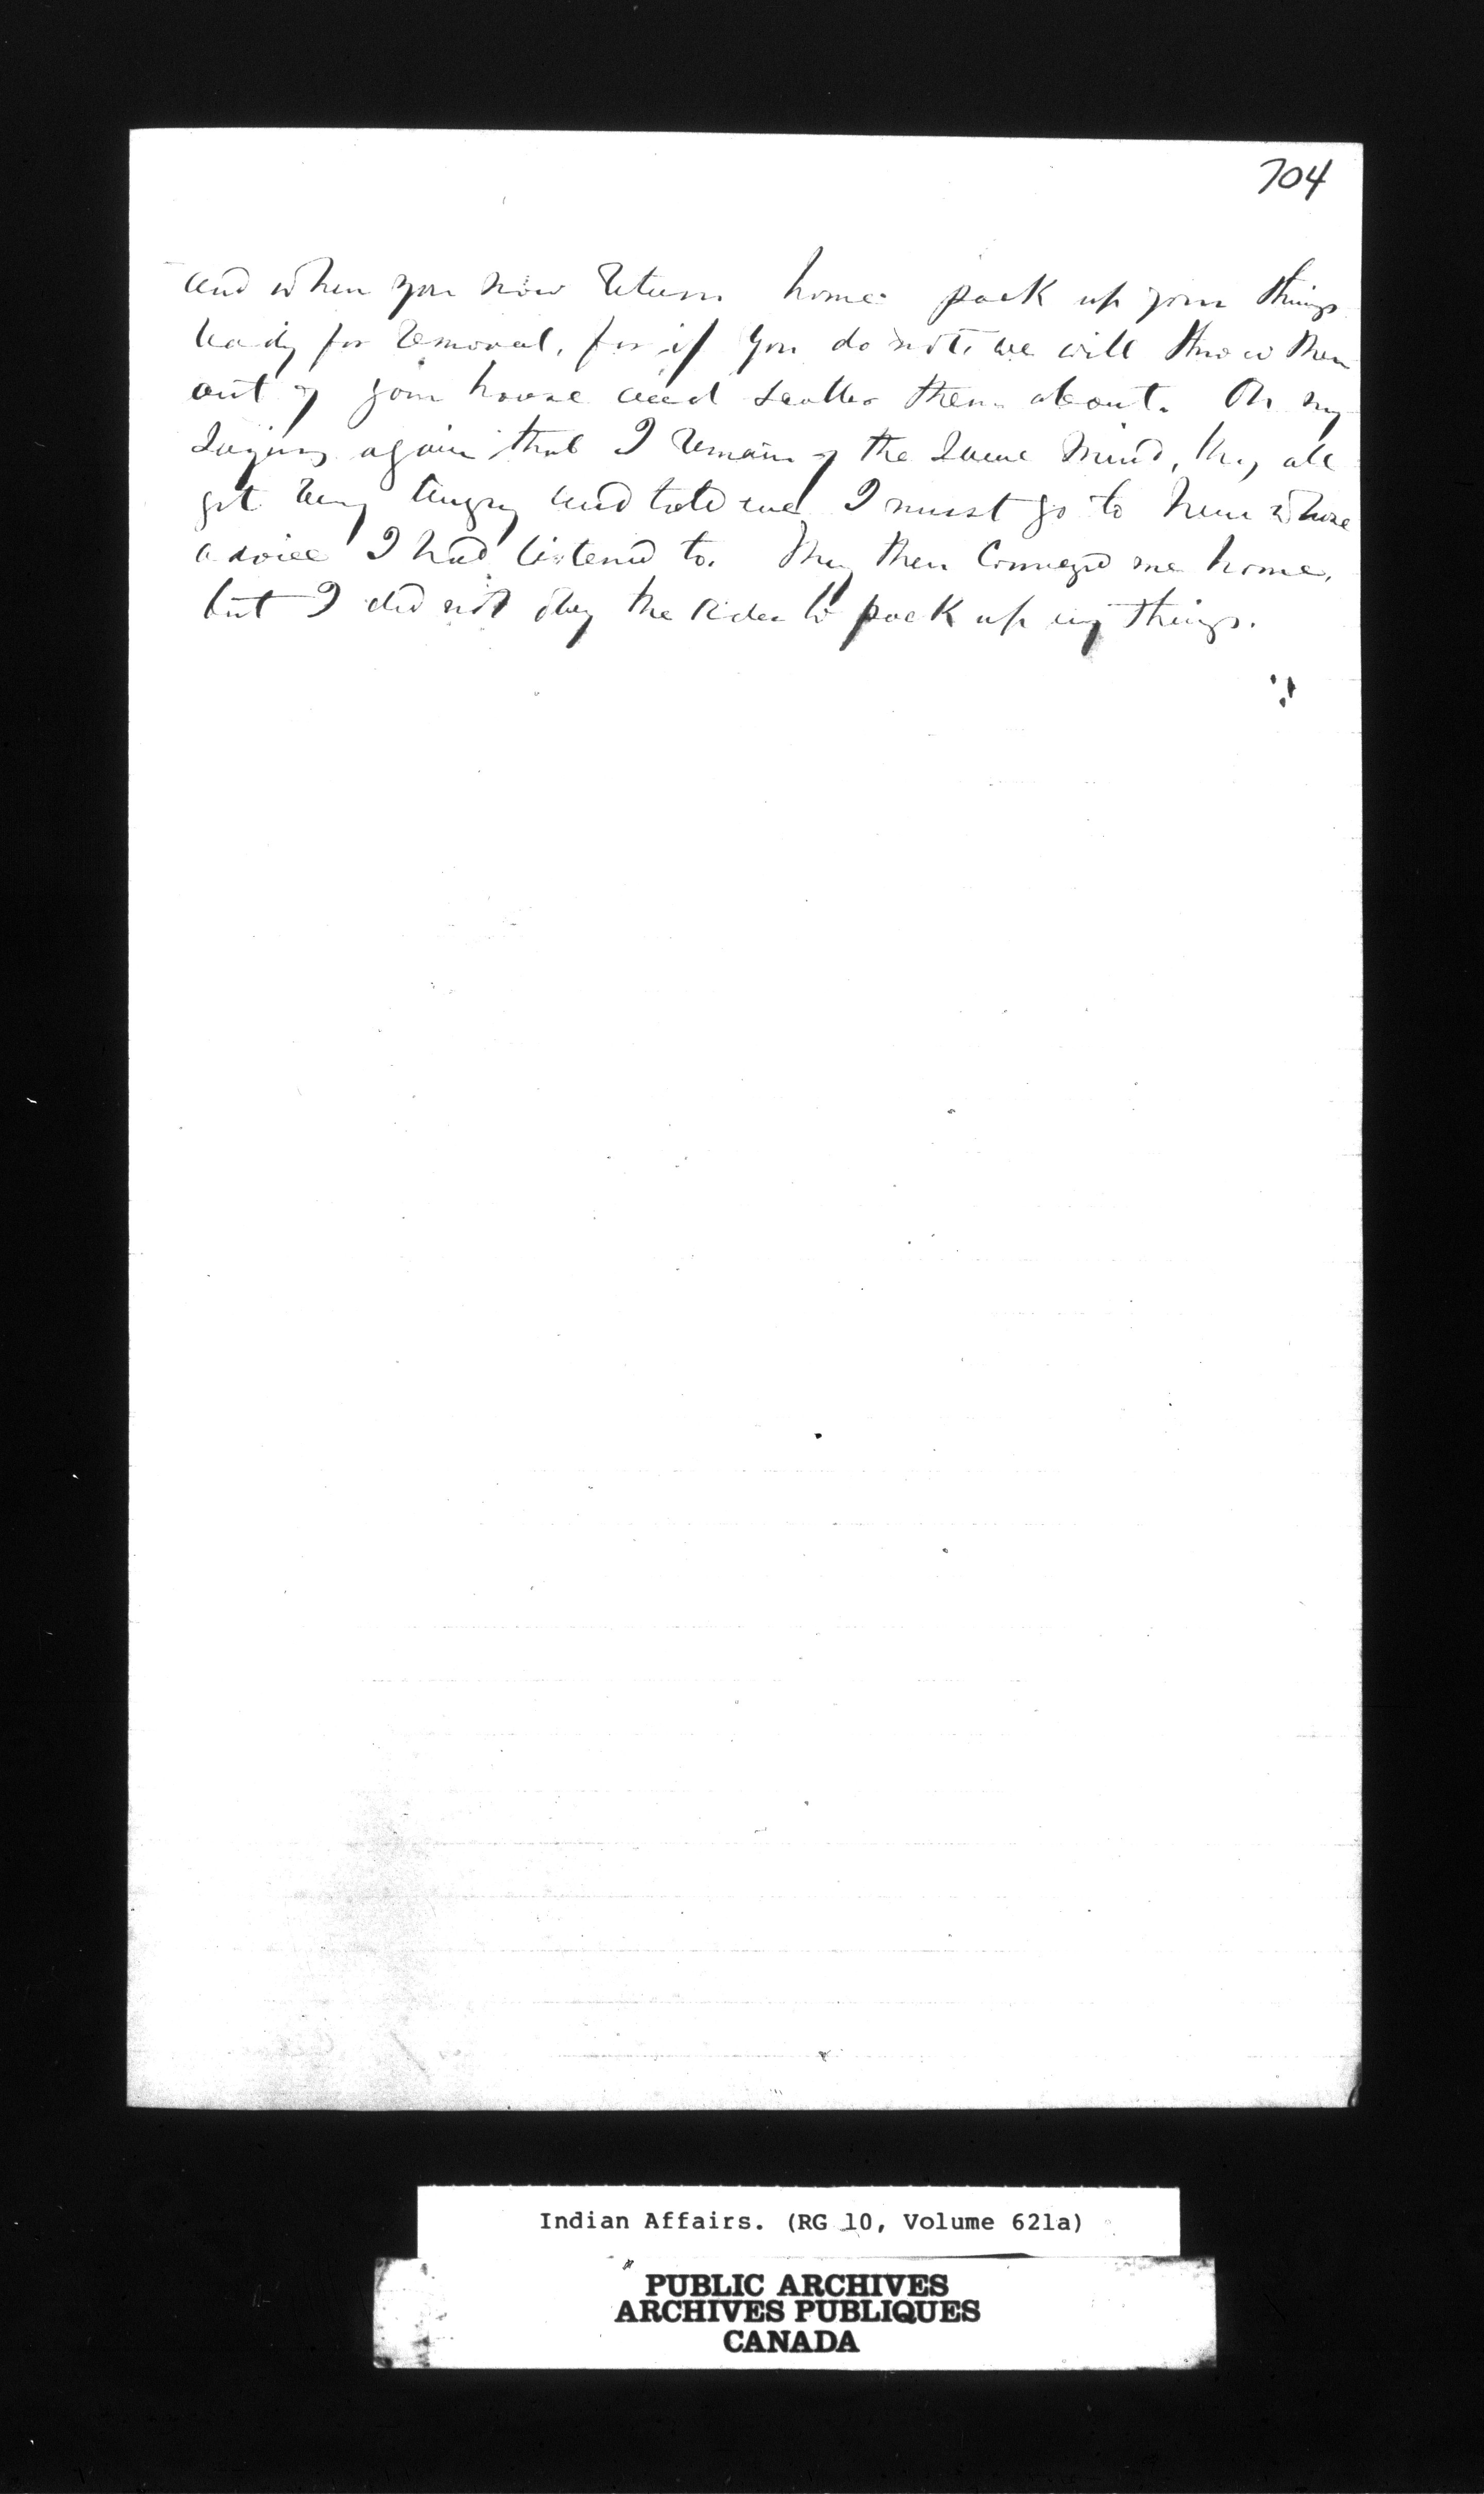 704
and when you now return home pack up your things
ready for removal, for if you do not, we will throw them
out of your house and scatter them about. On my
saying again that I remain of the same mind, they all
got very angry and told me I must go to him whose
advice I had listened to. They then conveyed me home,
but I did not obey the order to pack up my things.
Indian Affairs. (RG 10, Volume 621a)
PUBLIC ARCHIVES
ARCHIVES PUBLIQUES
CANADA